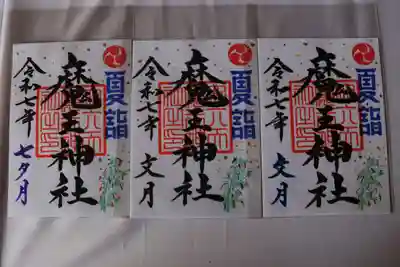 夏詣
魔王神社
令和七年
七夕月
夏詣
魔王神社
令和七年
文月
夏詣
魔王神社
令和七年
文月